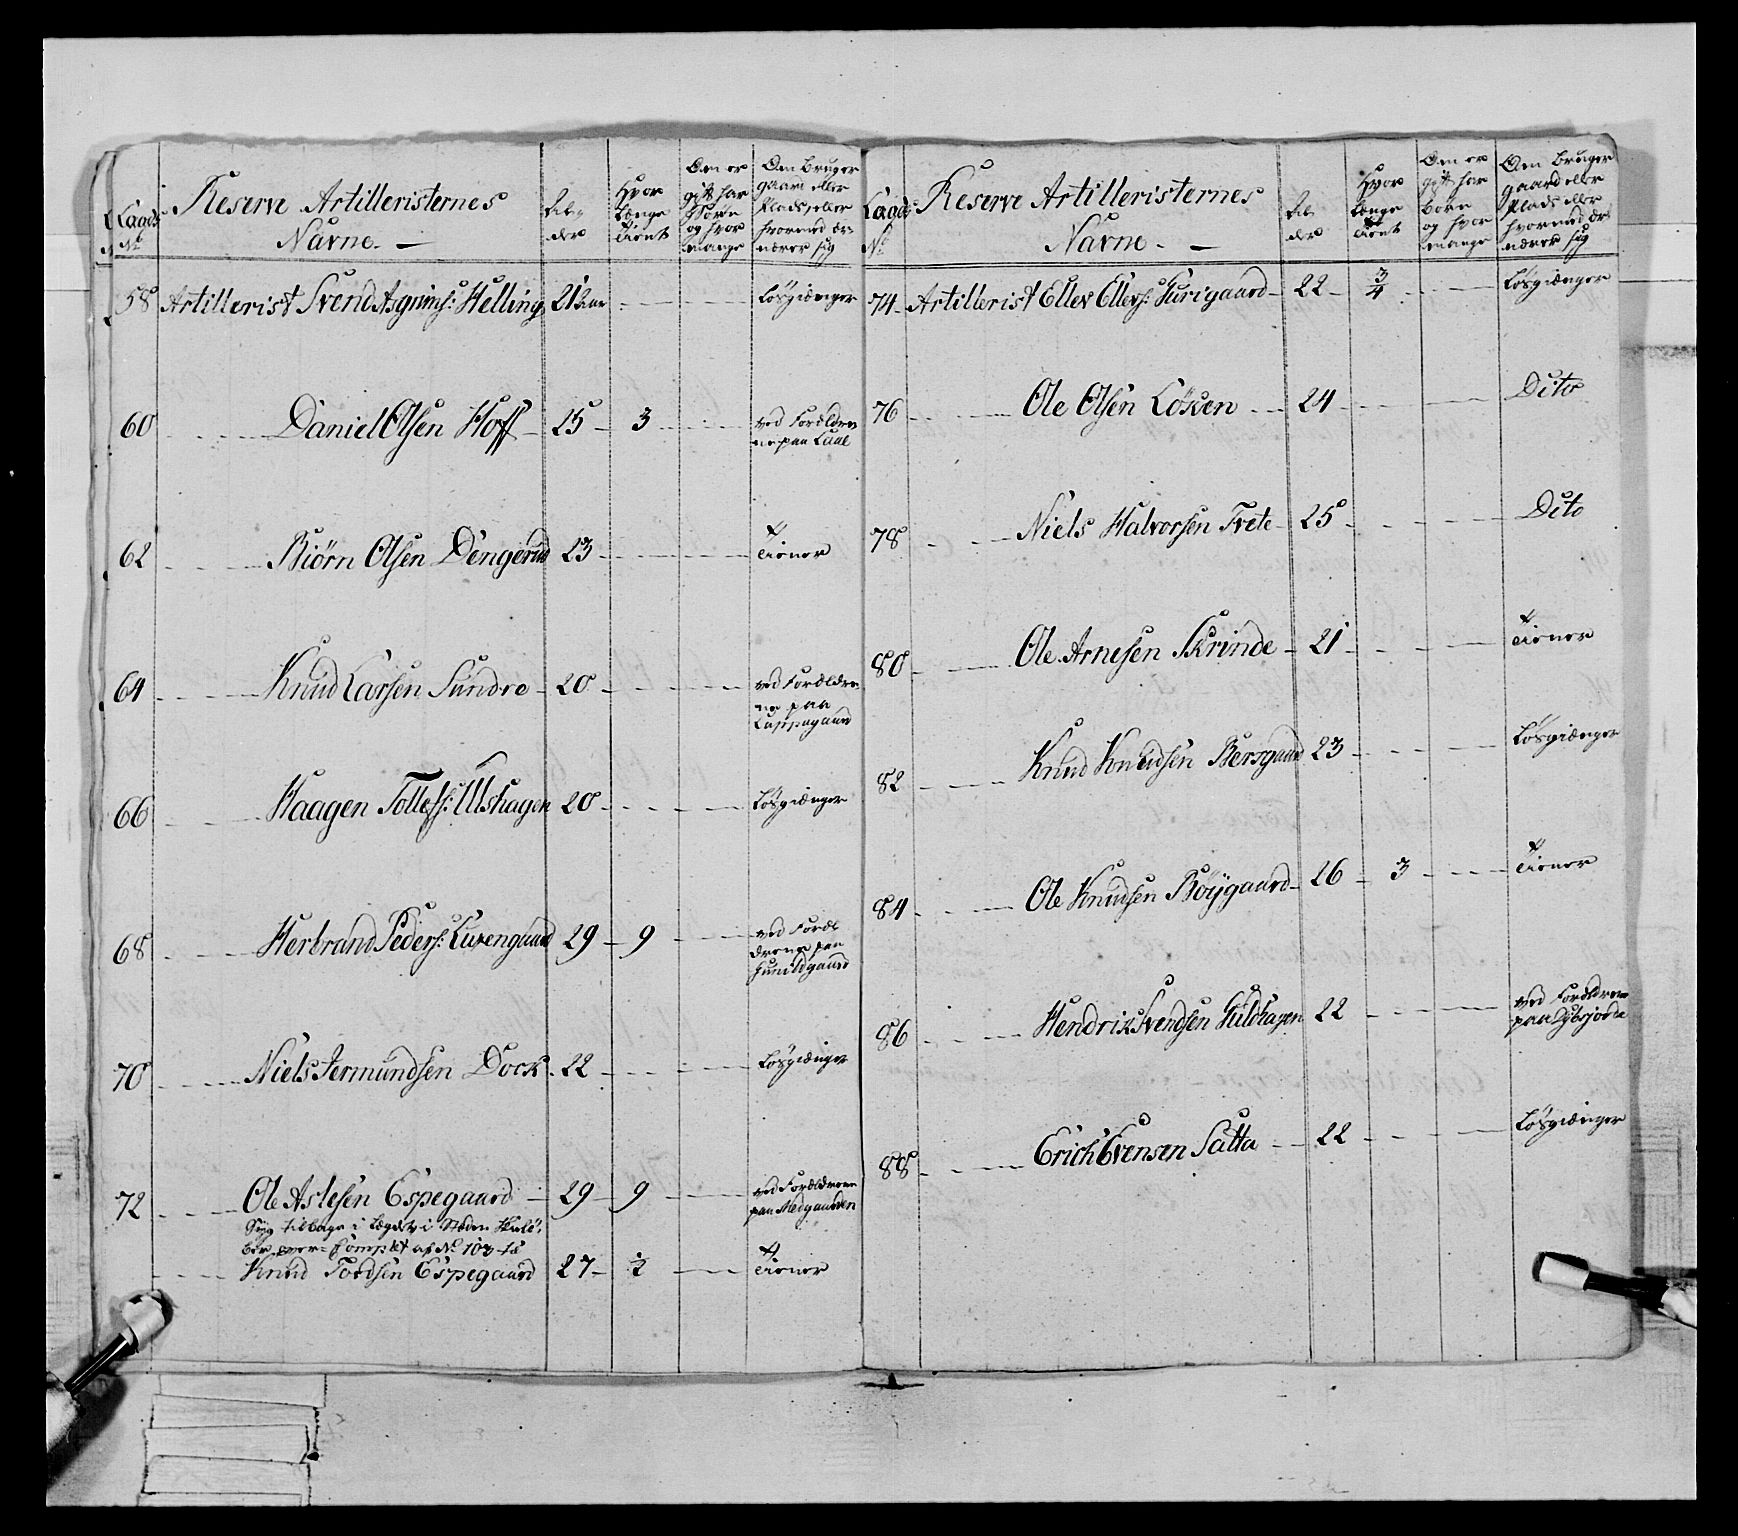 Laads No
Reserve Artilleristernes Navne. —
Al-der
Hvor længe tient
Om er gift har Børn og hvor mange
Om bruger gaard eller Plads, eller hvormed ernærer sig
58 Artillerist Svend Asgrims: Helling 21 Aar Løsgiænger
60 Daniel Olsen Hoff 25 3 ved Forældrene paa
62 Biørn Olsen Dengerud 23 Tiener
64 Knud Larsen Sundre 20 ved Forældrene paa
66 Haagen Tollefs: Ulshagen 20 Løsgiænger
68 Herbrand Peders: 29 9 ved Forældrene paa
70 Niels Jermundsen Dock 22 Løsgiænger
72 Ole Aslesen Espegaard 29 9 ved Forældrene paa Medgaarden
Syg tilbage i Lægdet i Steden
Complet af No 103
Knud Tordsen Espegaard 27 Tiener
Laads No
Reserve Artilleristernes Navne. —
Al-der
Hvor længe tient
Om er gift har børn og hvor mange
Om bruger gaard eller Plads eller hvormed ernærer sig
74 Artillerist Ellev Ellevs: Turigaard 22 3/4 Løsgiænger
76 Ole Olsen Løken 24 Dito
78 Niels Halvorsen Tvete 25 Dito
80 Ole Arnesen Skrinde 21 Tiener
82 Knud Knudsen Bersgaard 23 Løsgiænger
84 Ole Knudsen Bøygaard 26 3 Tiener
86 Hendrik Svendsen Guldhagen 22 ved Forældrene paa
88 Erich Evensen Satta 22 Løsgiænger